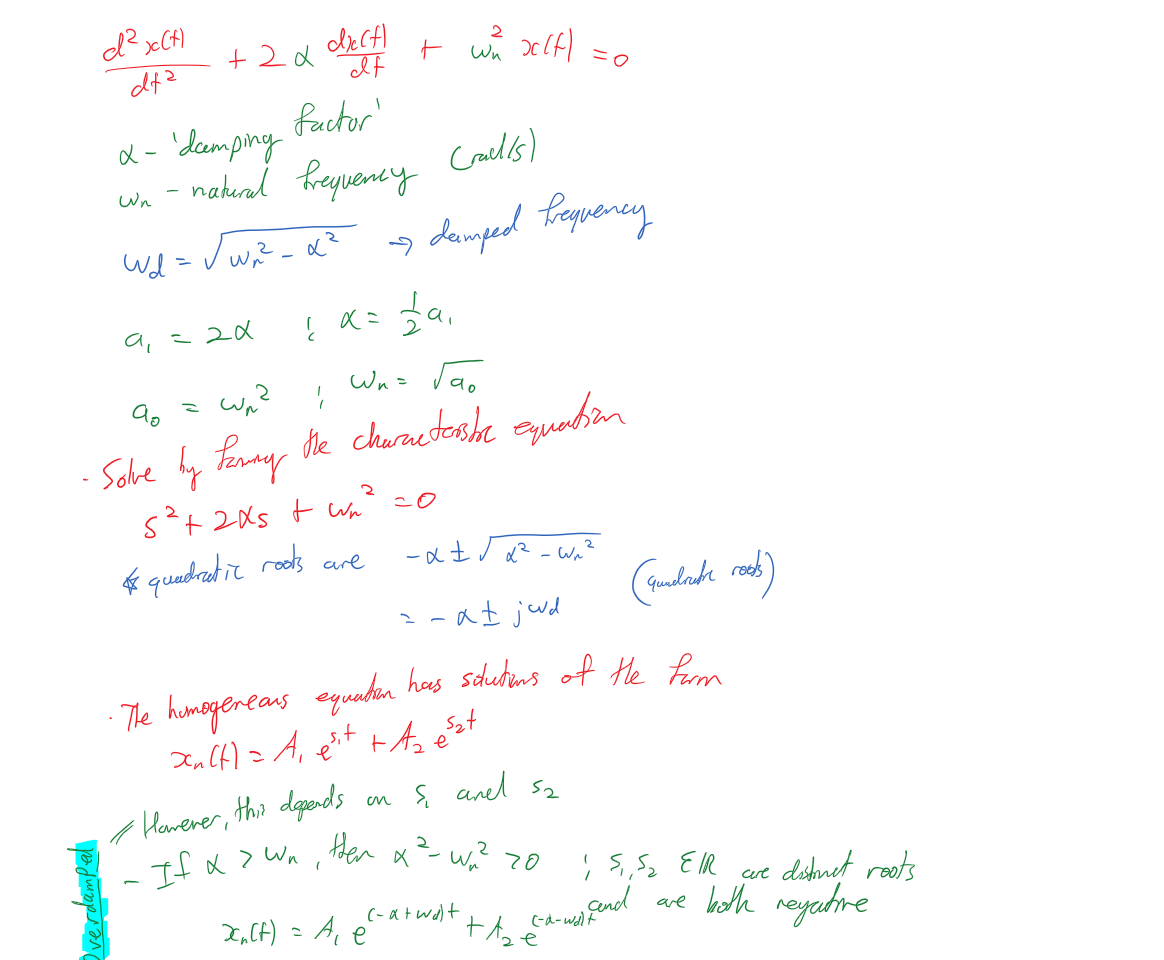 d²x(t)/dt² + 2α dx(t)/dt + ωn² x(t) = 0
α – 'damping factor'
ωn – natural frequency (rad/s)
ωd = √(ωn² – α²) → damped frequency
a₁ = 2α ; α = ½a₁
a₀ = ωn² ; ωn = √a₀
· Solve by forming the characteristic equation
s² + 2αs + ωn² = 0
* quadratic roots are –α ± √(α² – ωn²) (quadratic roots)
= –α ± jωd
· The homogeneous equation has solutions of the form
xn(t) = A₁ e^(s₁t) + A₂ e^(s₂t)
// However, this depends on s₁ and s₂
Overdamped
– If α > ωn, then α² – ωn² > 0 ; s₁, s₂ ∈ ℝ are distinct roots
and are both negative
xn(t) = A₁ e^((–α+ωd)t) + A₂ e^((–α–ωd)t)